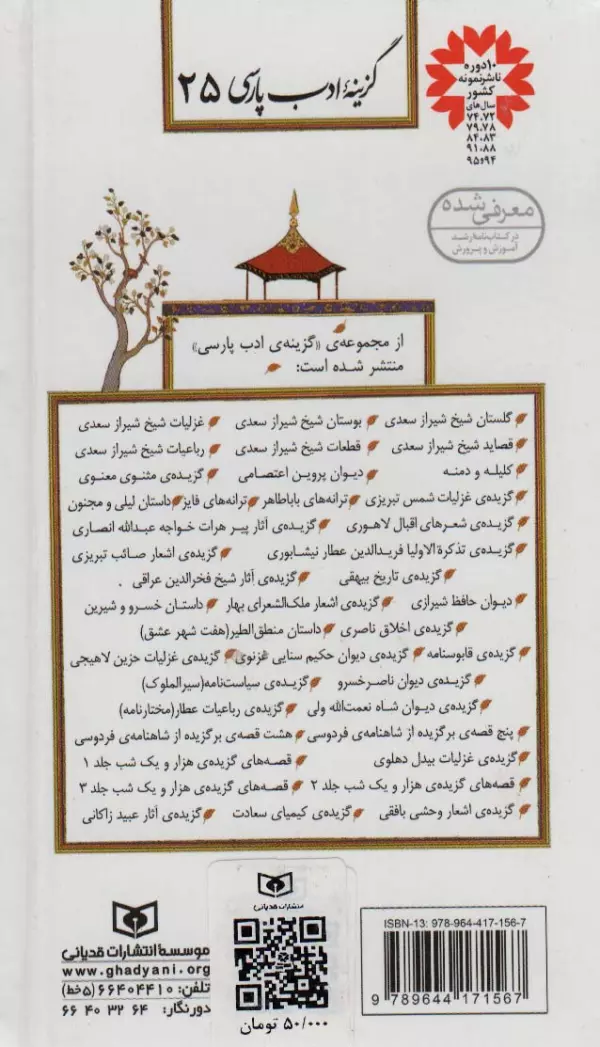 گزینهٔ ادب پارسی ۲۵
۱۰ دوره
ناشر نمونه
کشور
سال‌های
۷۴،۷۲
۷۹،۷۸
۸۴،۸۳
۹۱،۸۸
۹۴و۹۵
معرفی شده
در کتاب‌نامه رشد
آموزش و پرورش
از مجموعه‌ی «گزینه‌ی ادب پارسی»
منتشر شده است:
گلستان شیخ شیراز سعدی بوستان شیخ شیراز سعدی غزلیات شیخ شیراز سعدی
قصاید شیخ شیراز سعدی قطعات شیخ شیراز سعدی رباعیات شیخ شیراز سعدی
کلیله و دمنه دیوان پروین اعتصامی گزیده‌ی مثنوی معنوی
گزیده‌ی غزلیات شمس تبریزی ترانه‌های باباطاهر ترانه‌های فایز داستان لیلی و مجنون
گزیده‌ی شعرهای اقبال لاهوری گزیده‌ی آثار پیر هرات خواجه عبدالله انصاری
گزیده‌ی تذکرة الاولیا فریدالدین عطار نیشابوری گزیده‌ی اشعار صائب تبریزی
گزیده‌ی تاریخ بیهقی گزیده‌ی آثار شیخ فخرالدین عراقی
دیوان حافظ شیرازی گزیده‌ی اشعار ملک‌الشعرای بهار داستان خسرو و شیرین
گزیده‌ی اخلاق ناصری داستان منطق‌الطیر(هفت شهر عشق)
گزیده‌ی قابوسنامه گزیده‌ی دیوان حکیم سنایی غزنوی گزیده‌ی غزلیات حزین لاهیجی
گزیده‌ی دیوان ناصرخسرو گزیده‌ی سیاست‌نامه(سیرالملوک)
گزیده‌ی دیوان شاه نعمت‌الله ولی گزیده‌ی رباعیات عطار(مختارنامه)
پنج قصه‌ی برگزیده از شاهنامه‌ی فردوسی هشت قصه‌ی برگزیده از شاهنامه‌ی فردوسی
گزیده‌ی غزلیات بیدل دهلوی قصه‌های گزیده‌ی هزار و یک شب جلد ۱
قصه‌های گزیده‌ی هزار و یک شب جلد ۲ قصه‌های گزیده‌ی هزار و یک شب جلد ۳
گزیده‌ی اشعار وحشی بافقی گزیده‌ی کیمیای سعادت گزیده‌ی آثار عبید زاکانی
ISBN-13: 978-964-417-156-7
9 789644 171567
انتشارات قدیانی
۵۰/۰۰۰ تومان
موسسهٔ انتشارات قدیانی
www.ghadyani.org
تلفن: ۶۶۴۰۴۴۱۰ (۵ خط)
دورنگار: ۶۶ ۴۰ ۳۲ ۶۴